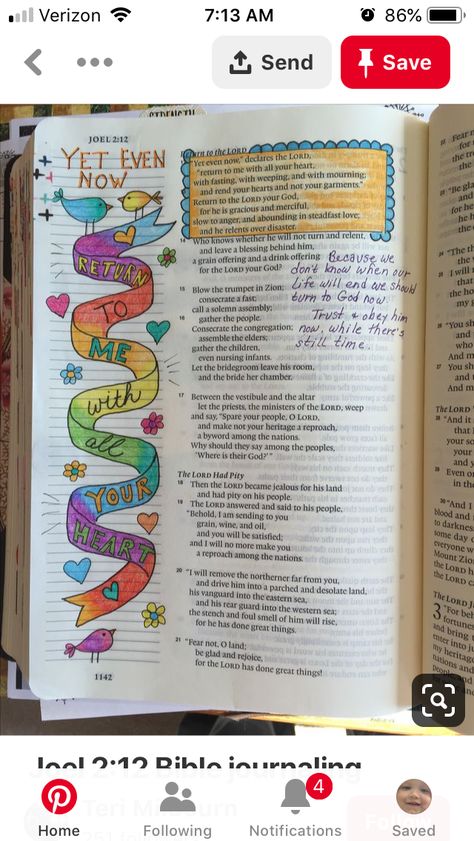 Verizon
7:13 AM
86%
Send
Save
STRENGTH
JOEL 2:12
YET EVEN
NOW
RETURN
TO
ME
with
all
YOUR
HEART
Return to the LORD
"Yet even now," declares the LORD,
"return to me with all your heart,
with fasting, with weeping, and with mourning;
and rend your hearts and not your garments."
Return to the LORD your God,
for he is gracious and merciful,
slow to anger, and abounding in steadfast love;
and he relents over disaster.
14 Who knows whether he will not turn and relent,
and leave a blessing behind him,
a grain offering and a drink offering
for the LORD your God?
Because we
don't know when our
life will end we should
turn to God now.
Trust & obey him
now, while there's
still time.
15 Blow the trumpet in Zion;
consecrate a fast;
call a solemn assembly;
16 gather the people.
Consecrate the congregation;
assemble the elders;
gather the children,
even nursing infants.
Let the bridegroom leave his room,
and the bride her chamber.
17 Between the vestibule and the altar
let the priests, the ministers of the LORD, weep
and say, "Spare your people, O LORD,
and make not your heritage a reproach,
a byword among the nations.
Why should they say among the peoples,
'Where is their God?'"
The LORD Had Pity
18 Then the LORD became jealous for his land
and had pity on his people.
19 The LORD answered and said to his people,
"Behold, I am sending to you
grain, wine, and oil,
and you will be satisfied;
and I will no more make you
a reproach among the nations.
20 "I will remove the northerner far from you,
and drive him into a parched and desolate land,
his vanguard into the eastern sea,
and his rear guard into the western sea;
the stench and foul smell of him will rise,
for he has done great things.
21 "Fear not, O land;
be glad and rejoice,
for the LORD has done great things!
1142
Joel 2:12 Bible journaling
Teri
Follow
4
Home
Following
Notifications
Saved